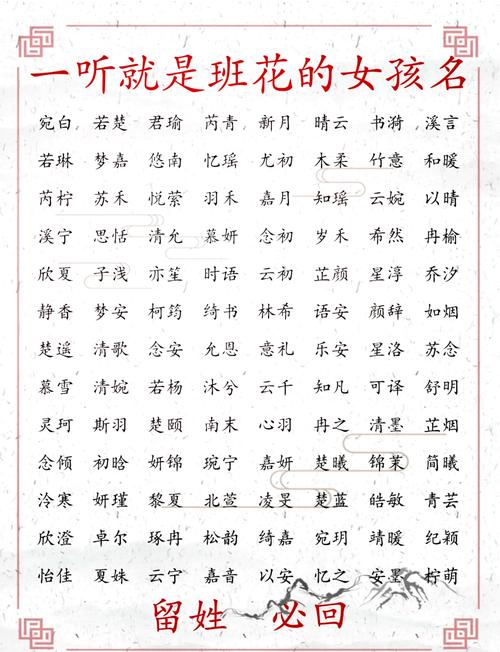 一听就是班花的女孩名
宛白 若楚 君瑜 芮青 新月 晴云 书漪 溪言
若琳 梦嘉 悠南 忆瑶 尤初 木柔 竹意 和暖
芮柠 苏禾 悦萦 羽禾 嘉月 知瑶 云婉 以晴
溪宁 思恬 清允 慕妍 念初 岁禾 希然 冉榆
欣夏 子浅 亦笙 时语 云初 芷颜 星淳 乔汐
静香 梦安 柯筠 绮书 林希 语安 颜辞 如烟
楚遥 清歌 念安 允恩 意礼 乐安 星洛 苏念
慕雪 清婉 若杨 沐兮 云千 知凡 可译 舒明
灵珂 斯羽 楚颐 南末 心羽 冉之 清墨 芷烟
念倾 初晗 妍锦 琬宁 嘉妍 楚曦 锦茉 简曦
泠寒 妍瑾 黎夏 北萱 凌旻 楚蓝 皓敏 青芸
欣澄 卓尔 琢冉 松韵 绮嘉 宛玥 靖暖 纪颖
怡佳 夏姝 云宁 嘉音 以安 忆之 安墨 柠萌
留姓 必回